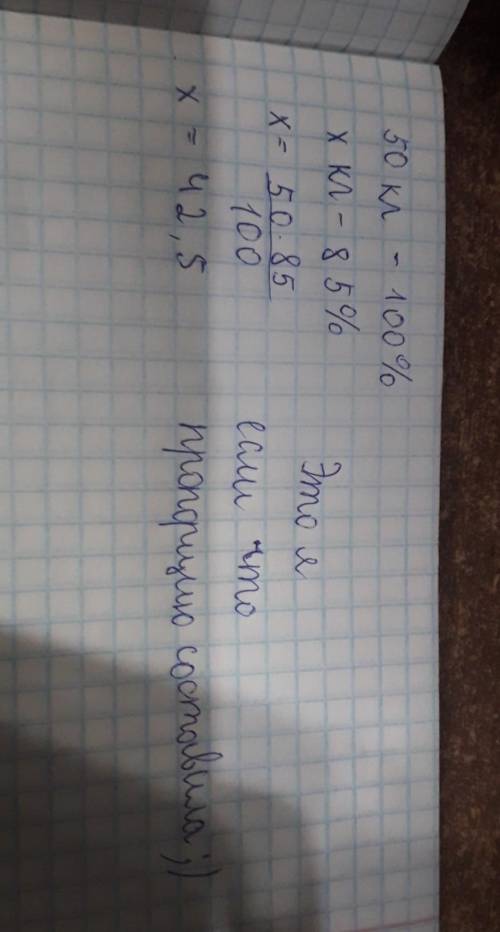 50 кг - 100%
x кг - 85%
x = 50·85
100
x = 42,5
Это я
если что
пропорцию составила ;))